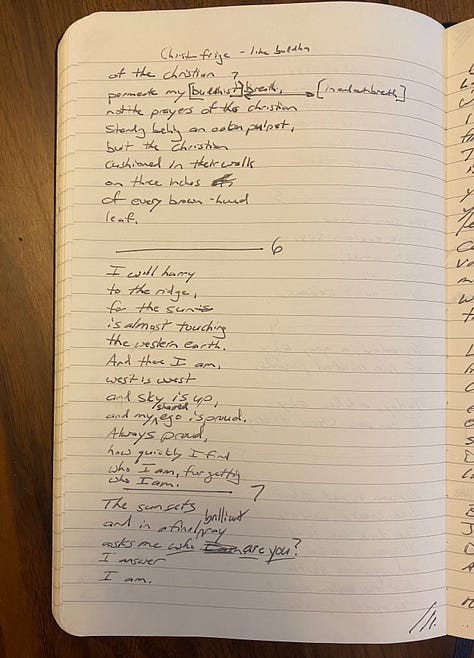 Christ frige - like buddha
of the christian ?
permeate my [buddhist] breath, → [in and out breath]
not the prayers of the christian
standg behg an oaken pulpet,
but the christian
cushioned in their walls
on three inches
of every brown-hued
leaf.
6
I will harry
to the ridge,
for the sun is
is almost touching
the western earth.
And there I am,
west is west
and sky is up,
and my shared ego is proud.
Always proud,
how quickly I find
who I am, forgetting
who I am.
7
The sun sets
and in a final brilliant pray
asks me who I am are you?
I answer
I am.
11.